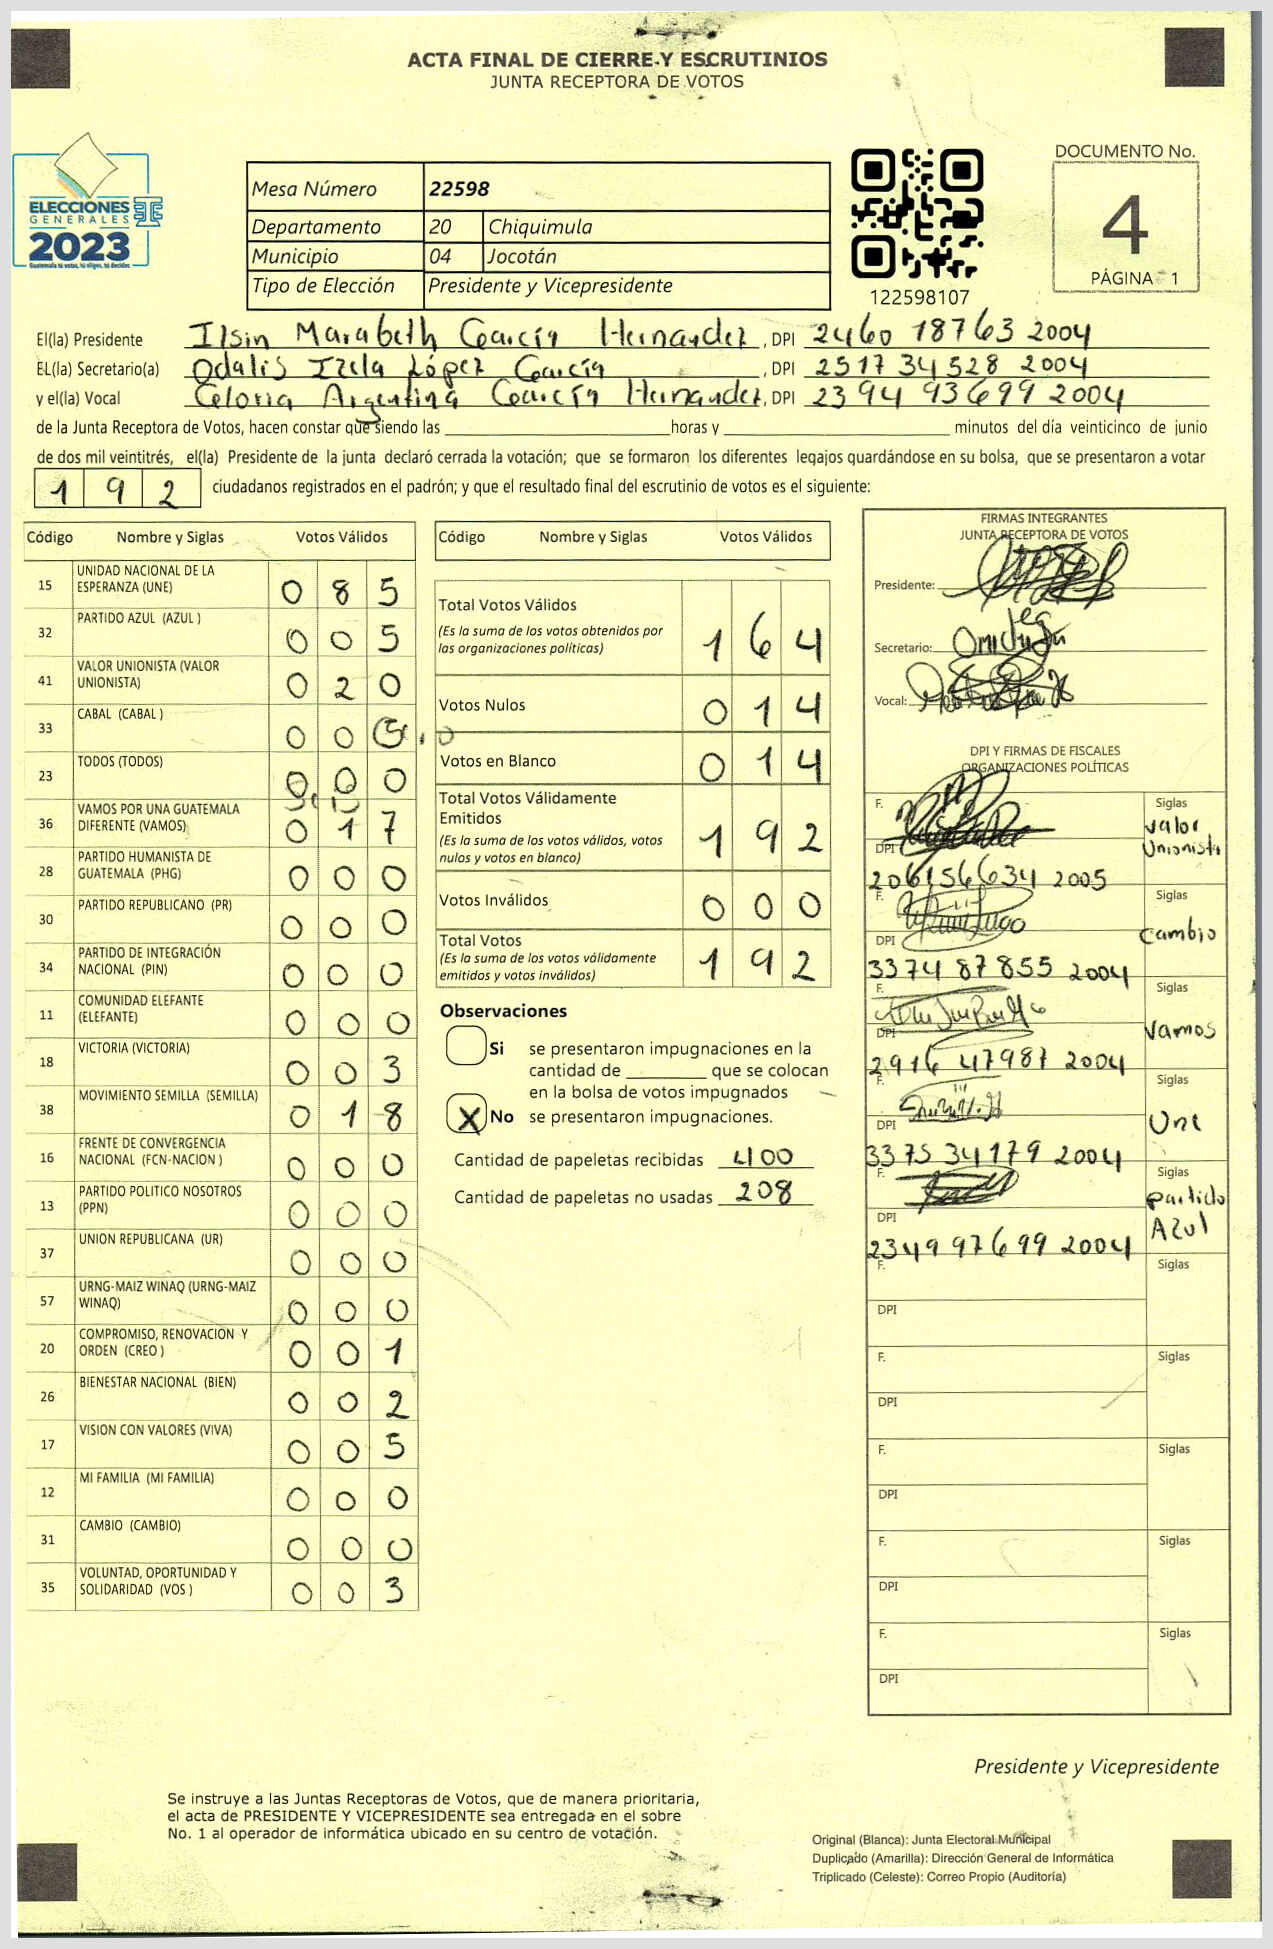 ACTA FINAL DE CIERRE Y ESCRUTINIOS
JUNTA RECEPTORA DE VOTOS
ELECCIONES
GENERALES
2023
Guatemala tú votas, tú eliges, tú decides
Mesa Número 22598
Departamento 20 Chiquimula
Municipio 04 Jocotán
Tipo de Elección Presidente y Vicepresidente
122598107
DOCUMENTO No.
4
PÁGINA 1
El(la) Presidente Ilsin Marabeth García Hernandez, DPI 2460 18763 2004
EL(la) Secretario(a) Odalis Izela López García, DPI 2517 34528 2004
y el(la) Vocal Gloria Argentina García Hernandez, DPI 2394 93699 2004
de la Junta Receptora de Votos, hacen constar que siendo las horas y minutos del día veinticinco de junio
de dos mil veintitrés, el(la) Presidente de la junta declaró cerrada la votación; que se formaron los diferentes legajos guardándose en su bolsa, que se presentaron a votar
192 ciudadanos registrados en el padrón; y que el resultado final del escrutinio de votos es el siguiente:
Código Nombre y Siglas Votos Válidos
15 UNIDAD NACIONAL DE LA ESPERANZA (UNE) 0 8 5
32 PARTIDO AZUL (AZUL ) 0 0 5
41 VALOR UNIONISTA (VALOR UNIONISTA) 0 2 0
33 CABAL (CABAL ) 0 0 5
23 TODOS (TODOS) 0 0 0
36 VAMOS POR UNA GUATEMALA DIFERENTE (VAMOS) 0 1 7
28 PARTIDO HUMANISTA DE GUATEMALA (PHG) 0 0 0
30 PARTIDO REPUBLICANO (PR) 0 0 0
34 PARTIDO DE INTEGRACIÓN NACIONAL (PIN) 0 0 0
11 COMUNIDAD ELEFANTE (ELEFANTE) 0 0 0
18 VICTORIA (VICTORIA) 0 0 3
38 MOVIMIENTO SEMILLA (SEMILLA) 0 1 8
16 FRENTE DE CONVERGENCIA NACIONAL (FCN-NACION ) 0 0 0
13 PARTIDO POLITICO NOSOTROS (PPN) 0 0 0
37 UNION REPUBLICANA (UR) 0 0 0
57 URNG-MAIZ WINAQ (URNG-MAIZ WINAQ) 0 0 0
20 COMPROMISO, RENOVACION Y ORDEN (CREO ) 0 0 1
26 BIENESTAR NACIONAL (BIEN) 0 0 2
17 VISION CON VALORES (VIVA) 0 0 5
12 MI FAMILIA (MI FAMILIA) 0 0 0
31 CAMBIO (CAMBIO) 0 0 0
35 VOLUNTAD, OPORTUNIDAD Y SOLIDARIDAD (VOS ) 0 0 3
Código Nombre y Siglas Votos Válidos
Total Votos Válidos 1 6 4
(Es la suma de los votos obtenidos por
las organizaciones políticas)
Votos Nulos 0 1 4
Votos en Blanco 0 1 4
Total Votos Válidamente
Emitidos 1 9 2
(Es la suma de los votos válidos, votos
nulos y votos en blanco)
Votos Inválidos 0 0 0
Total Votos 1 9 2
(Es la suma de los votos válidamente
emitidos y votos inválidos)
Observaciones
Si se presentaron impugnaciones en la
cantidad de que se colocan
en la bolsa de votos impugnados
X No se presentaron impugnaciones.
Cantidad de papeletas recibidas 400
Cantidad de papeletas no usadas 208
FIRMAS INTEGRANTES
JUNTA RECEPTORA DE VOTOS
Presidente:
Secretario:
Vocal:
DPI Y FIRMAS DE FISCALES
ORGANIZACIONES POLÍTICAS
F. Siglas
Valor
Unionista
DPI
206156634 2005
F. Siglas
Cambio
DPI
3374 87855 2004
F. Siglas
Vamos
DPI
2916 47987 2004
F. Siglas
Une
DPI
3375 34179 2004
F. Siglas
partido
Azul
DPI
2349 97699 2004
F. Siglas
DPI
F. Siglas
DPI
F. Siglas
DPI
F. Siglas
DPI
F. Siglas
DPI
Presidente y Vicepresidente
Se instruye a las Juntas Receptoras de Votos, que de manera prioritaria,
el acta de PRESIDENTE Y VICEPRESIDENTE sea entregada en el sobre
No. 1 al operador de informática ubicado en su centro de votación.
Original (Blanca): Junta Electoral Municipal
Duplicado (Amarilla): Dirección General de Informática
Triplicado (Celeste): Correo Propio (Auditoría)